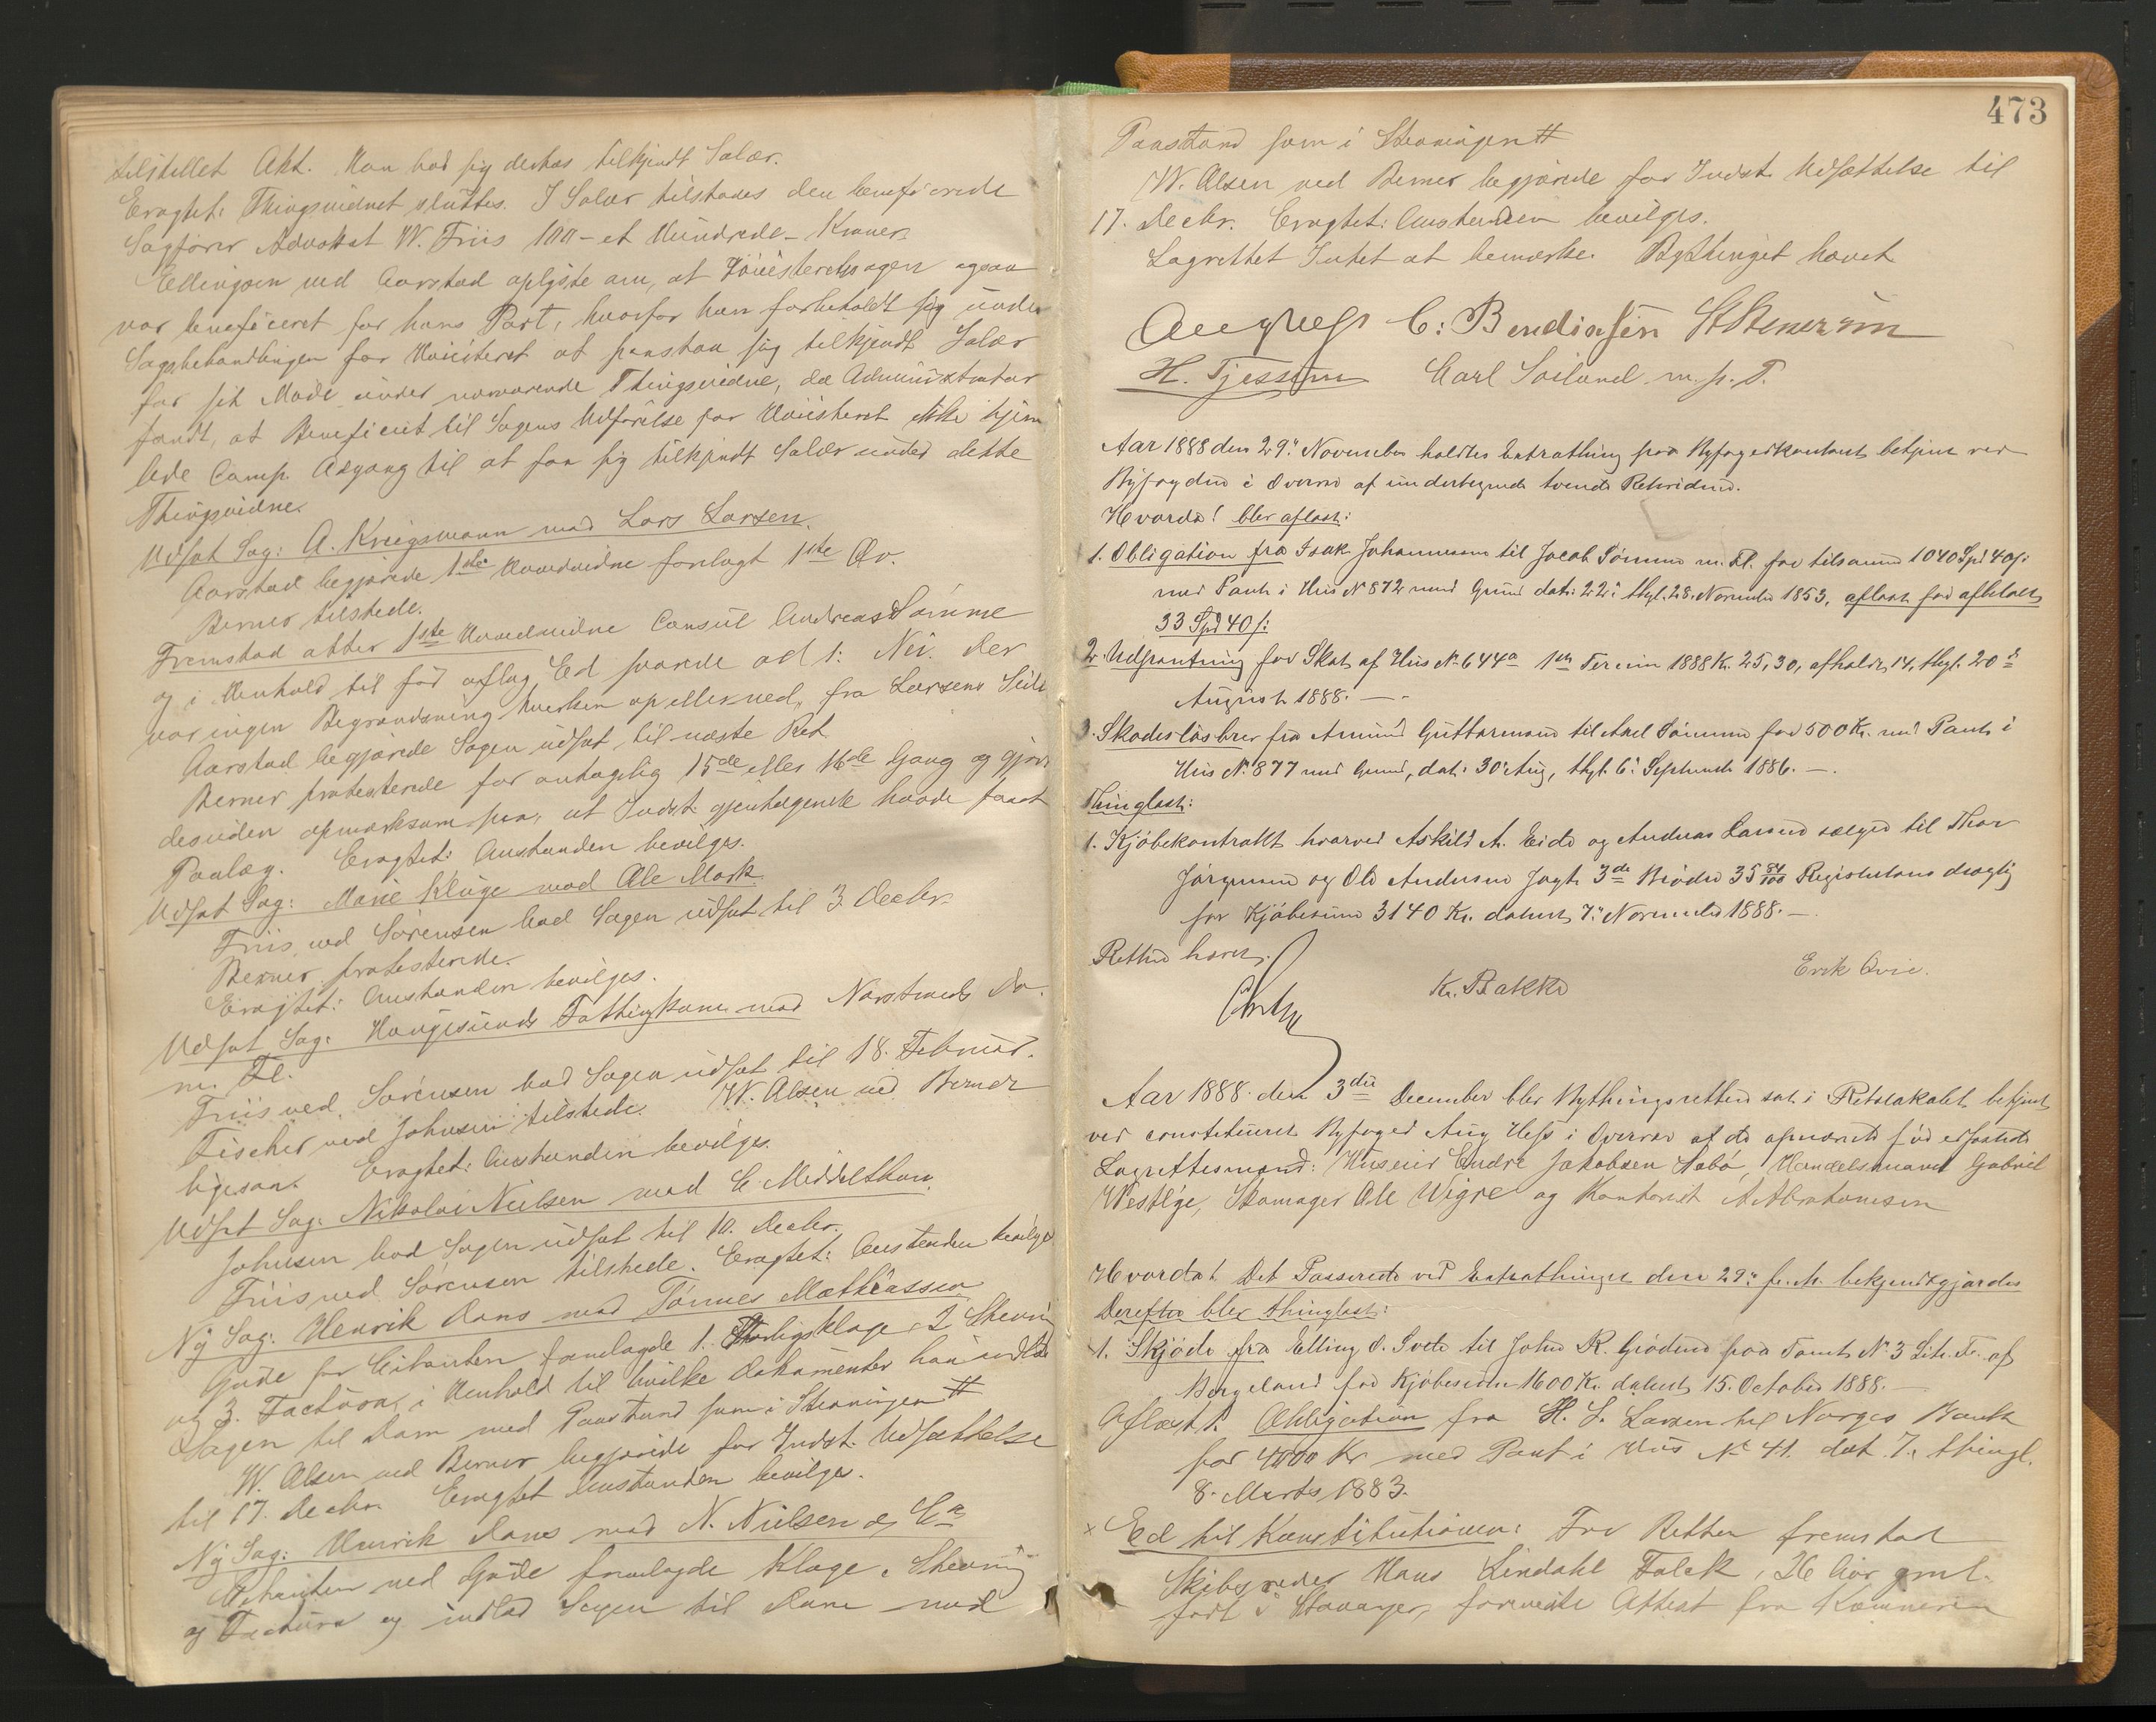 tilstillet Akt. Man bad sig derhos tilkjendt Salær.
Eragtet: Thingsvidnet sluttes. I Salær tilstodes den beneficerede
Sagfører Advokat W. Friis 100 - et Hundrede - Kroner.
Ellingsen ved Aarstad oplyste om, at Høiesteretssagen ogsaa
var beneficeret for hans Part, hvorfor han forbeholdt sig under
Sagsbehandlingen for Høiesteret at paastaa sig tilkjendt Salær
for sit Møde under nærværende Thingsvidne, da Administrator
fandt, at Beneficiet til Sagens Udførelse for Høiesteret ikke hjem
lede Comp. Adgang til at faa sig tilkjendt Salær under dette
Thingsvidne.
Udsat Sag: A. Kriegsmann mod Lars Larsen.
Aarstad begjærede 1ste Hovedvidne forelagt 1ste Gv.
Berner tilstede.
Fremstod atter 1ste Hovedvidne Consul Andreas Sømme
og i Henhold til før aflagt Ed svarede ad 1: Nei. Der
var ingen Begrændsning hverken op eller ned, fra Larsens Side
Aarstad begjærede Sagen udsat til næste Ret
Berner protesterede for antagelig 15de eller 16de Gang og gjorde
desuden opmærksom paa, at Indst. gjentagende havde faaet
Paalæg. Eragtet: Anstanden bevilges.
Udsat Sag: Marie Kluge mod Ole Mark.
Friis ved Sørensen bad Sagen udsat til 3. Decbr.
Berner protesterede.
Eragtet: Anstanden bevilges.
Udsat Sag: Haugesunds Fattigkom. mod Narstrands Do.
m. Fl.
Friis ved Sørensen bad Sagen udsat til 18. Februar.
Fischer ved Johnsen tilstede. W. Olsen ved Berner
ligesaa. Eragtet: Anstanden bevilges.
Udsat Sag: Nikolai Nielsen mod C. Middelthon.
Johnsen bad Sagen udsat til 10. Decbr.
Friis ved Sørensen tilstede. Eragtet: Anstanden bevilges
Ny Sag: Henrik Dons mod Tønnes Mathiassen
Gude for Citanten fremlagde 1. Forligsklage, 2 Stevning
og 3. Factura, i Henhold til hvilke Dokumenter han indlod
Sagen til Dom med Paastand som i Stevningen #
W. Olsen ved Berner begjærede for Indst. Udsættelse
til 17. Decbr. Eragtet Anstanden bevilges.
Ny Sag: Henrik Dons mod N. Nielsen & Co
Citanten ved Gude fremlagde Klage, Stevning
og Factura og indlod Sagen til Dom med
473
Paastand som i Stevningen #
W. Olsen ved Berner begjærede for Indst. Udsættelse til
17. Decbr. Eragtet: Anstanden bevilges.
Lagrettet Intet at bemærke. Bythinget hævet
Aug Hess C: Bendixsen
H. Tjessem Carl Soiland m. p. P.
Aar 1888 den 29: November holdtes Extrathing paa Byfogedkontoret betjent ved
Byfogden i Overvær af undertegnede tvende Retsvidner.
Hvorda! blev aflæst:
1. Obligation fra Isak Johannesen til Jacob Sømme m. Fl. for tilsamm 1040 Spd 40 s:
med Pant i Hus No 872 med Grund dat: 22: thgl. 28. November 1853, aflæst for afbetalt
33 Spd 40 s:
2. Udpantning for Skat af Hus No 644a 1ste Termin 1888 K. 25,30, afholdt 14, thgl. 20de
August 1888. —
3. Skadesløsbrev fra Amund Guttormsen til Axel Sømme for 500 Kr. med Pant i
Hus No 877 med Grund, dat: 30: Aug, thgl. 6: Septembr 1886. —
Thinglæst:
1. Kjøbekontrakt hvorved Askild A. Eide og Andreas Larsen sælger til Thor
Jørgensen og Ole Andersen Jagt 3de Brødre 35 81/100 Registertons drægtig
for Kjøbesum 3140 Kr. dateret 7: November 1888. —
Retten hævet.
K. Bakke Erik Qvie.
Aar 1888 den 3die December blev Bythingsretten sat i Retslokalet betjent
ved constitueret Byfoged Aug Hess i Overvær af de opnævnte før edfæstede
Lagrettesmænd: Huseier Endre Jakobsen Aabø, Handelsmand Gabriel
Westlye, Skomager Ole Vigre og Kontorist A. Abrahamsen
Hvorda! Det Passerede ved Extrathinget den 29: f. M. bekjendtgjordes
Derefter blev thinglæst:
1. Skjøde fra Elling O. Svele til John R. Grødem paa Tomt No 3 Litr. F. af
Bergeland for Kjøbesum 1600 Kr. dateret 15. October 1888. —
Aflæst 1. Obligation fra H. L. Larsen til Norges Bank
for 4000 Kr med Pant i Hus No 41. dat. 7. thingl.
8. Marts 1883.
× Ed til Konstitutionen: For Retten fremstod
Skibsreder Hans Lindahl Falck, 26 Aar gml.
født i Stavanger, foreviste Attest fra Kæmneren